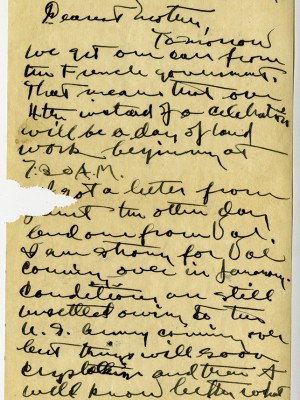 Dearest Mother,
Tomorrow
we get our cars from
the French government.
That means that our
4th instead of a celebration
will be a day of hard
work beginning at
7.30 A.M.
got a letter from
the other day
and one from Val.
I am strong for Val
coming over in January.
Conditions are still
unsettled owing to the
U.S. Army coming over
but things will soon
and then I
will know better what